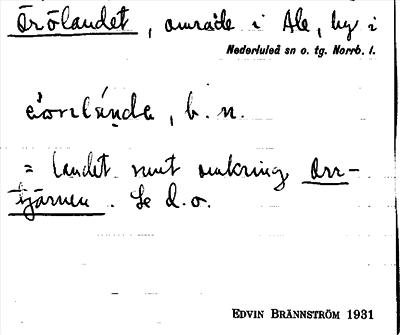 Örölandet, område i Ale, by i
Nederluleå sn o. tg. Norrb. l.
b. n.
= landet runt omkring Orr-
tjärnen. Se d. o.
EDVIN BRÄNNSTRÖM 1931